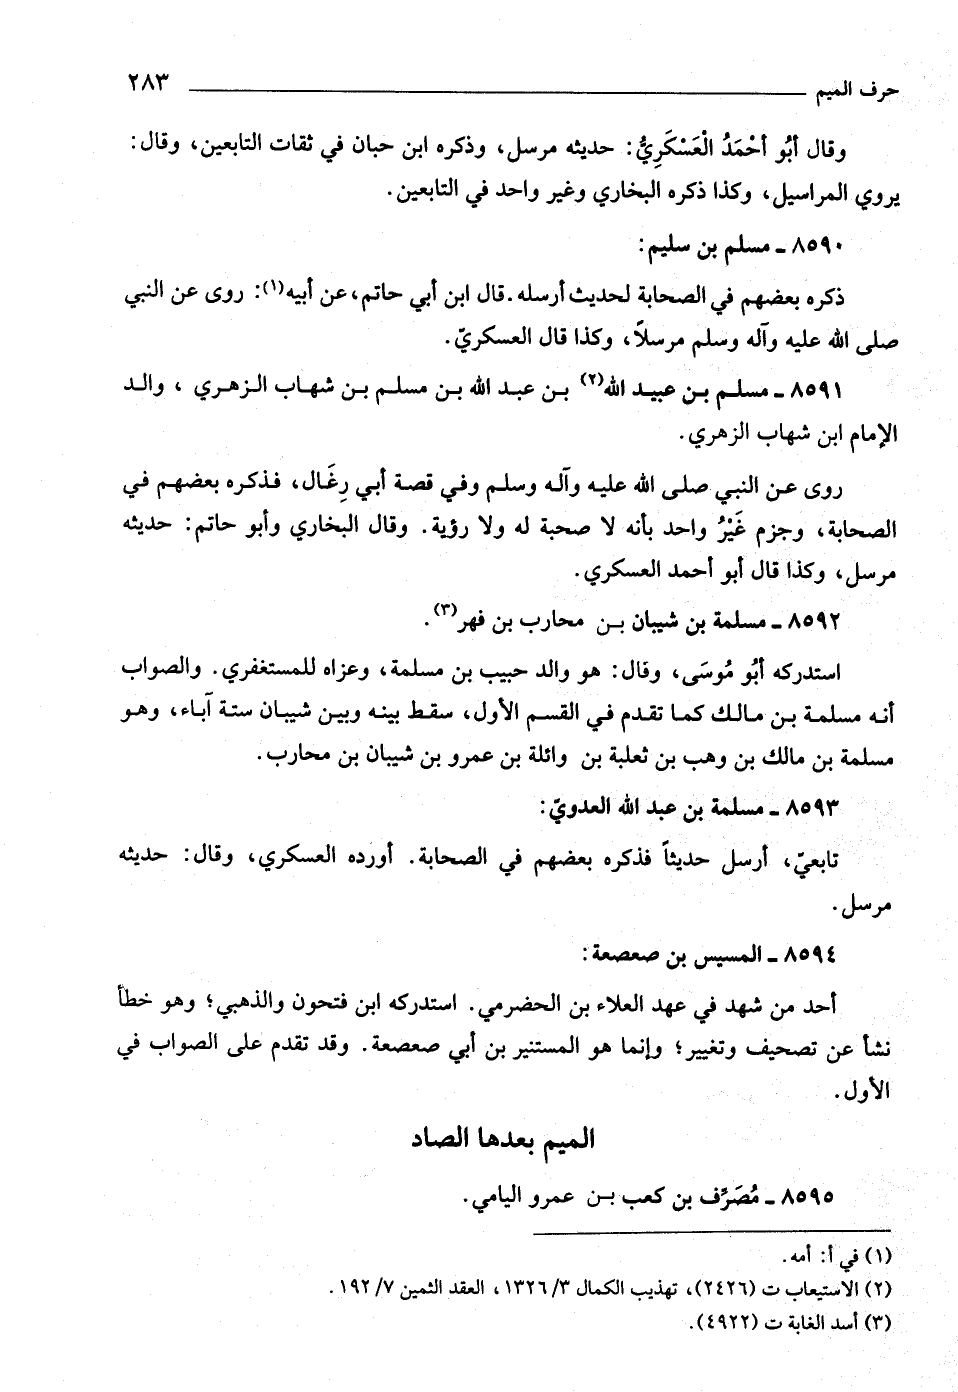 حرف الميم ٢٨٣
وقال أَبُو أَحْمَدُ الْعَسْكَرِيُّ: حديثه مرسل، وذكره ابن حبان في ثقات التابعين، وقال:
يروي المراسيل، وكذا ذكره البخاري وغير واحد في التابعين.
٨٥٩٠ ـ مسلم بن سليم:
ذكره بعضهم في الصحابة لحديث أرسله. قال ابن أبي حاتم، عن أبيه(١): روى عن النبي
صلى الله عليه وآله وسلم مرسلاً، وكذا قال العسكريّ.
٨٥٩١ ـ مسلم بن عبيد الله(٢) بن عبد الله بن مسلم بن شهاب الزهري ، والد
الإمام ابن شهاب الزهري.
روى عن النبي صلى الله عليه وآله وسلم وفي قصة أبي رِغَال، فذكره بعضهم في
الصحابة، وجزم غَيْرُ واحد بأنه لا صحبة له ولا رؤية. وقال البخاري وأبو حاتم: حديثه
مرسل، وكذا قال أبو أحمد العسكري.
٨٥٩٢ ـ مسلمة بن شيبان بن محارب بن فهر(٣).
استدركه أَبُو مُوسَى، وقال: هو والد حبيب بن مسلمة، وعزاه للمستغفري. والصواب
أنه مسلمة بن مالك كما تقدم في القسم الأول، سقط بينه وبين شيبان ستة آباء، وهو
مسلمة بن مالك بن وهب بن ثعلبة بن وائلة بن عمرو بن شيبان بن محارب.
٨٥٩٣ ـ مسلمة بن عبد الله العدويّ:
تابعيّ، أرسل حديثاً فذكره بعضهم في الصحابة. أورده العسكري، وقال: حديثه
مرسل.
٨٥٩٤ ـ المسيس بن صعصعة:
أحد من شهد في عهد العلاء بن الحضرمي. استدركه ابن فتحون والذهبي؛ وهو خطأ
نشأ عن تصحيف وتغيير؛ وإنما هو المستنير بن أبي صعصعة. وقد تقدم على الصواب في
الأول.
الميم بعدها الصاد
٨٥٩٥ ـ مُصَرِّف بن كعب بن عمرو اليامي.
(١) في أ: أمه.
(٢) الاستيعاب ت (٢٤٢٦)، تهذيب الكمال ٣/ ١٣٢٦، العقد الثمين ٧/ ١٩٢.
(٣) أسد الغابة ت (٤٩٢٢).